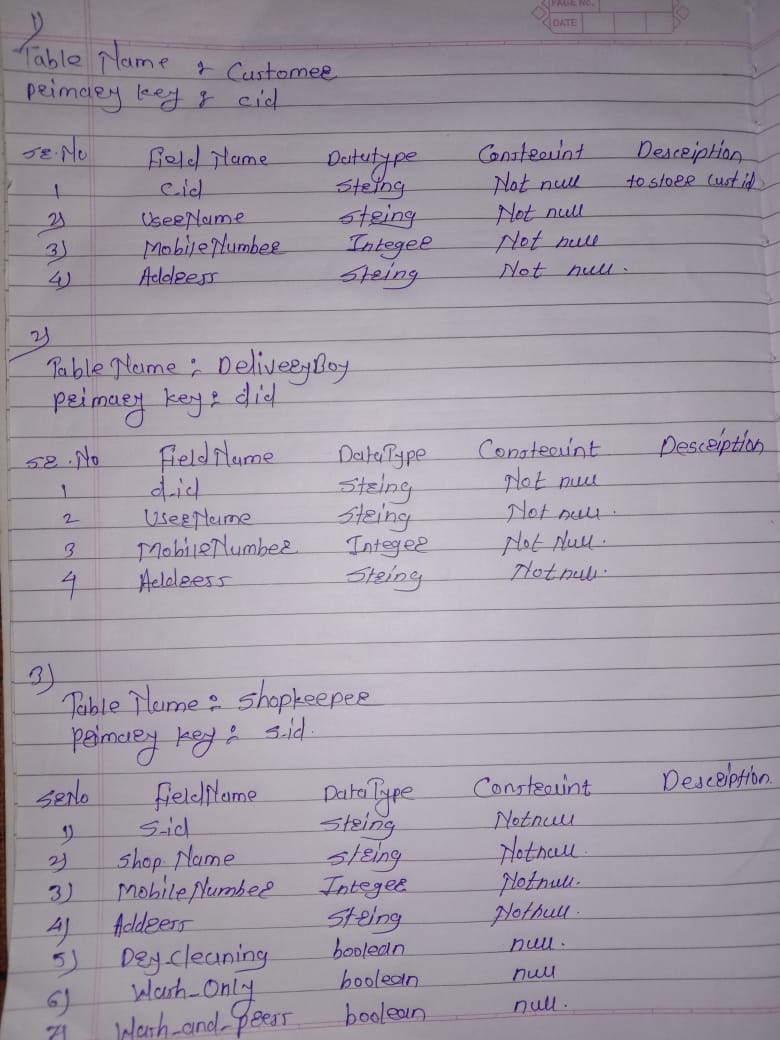 PAGE NO.
DATE
1)
Table Name : Customer
primary key : cid
Sr.No Field Name Datatype Constraint Description
1 c.id String Not null to store cust id
2) UserName String Not null
3) MobileNumber Integer Not null
4) Address String Not null.
2)
Table Name : DeliveryBoy
primary key : did
Sr.No Field Name DataType Constraint Description
1 d.id String Not null
2 UserName String Not null.
3 MobileNumber Integer Not Null.
4 Address String Not null.
3)
Table Name : Shopkeeper
primary key : s.id.
SrNo FieldName DataType Constraint Description.
1) S-id String Notnull
2) Shop Name String Notnull.
3) MobileNumber Integer Notnull.
4) Address String Notnull.
5) Dry-cleaning boolean null.
6) Wash-Only boolean null
7) Wash-and-press boolean null.